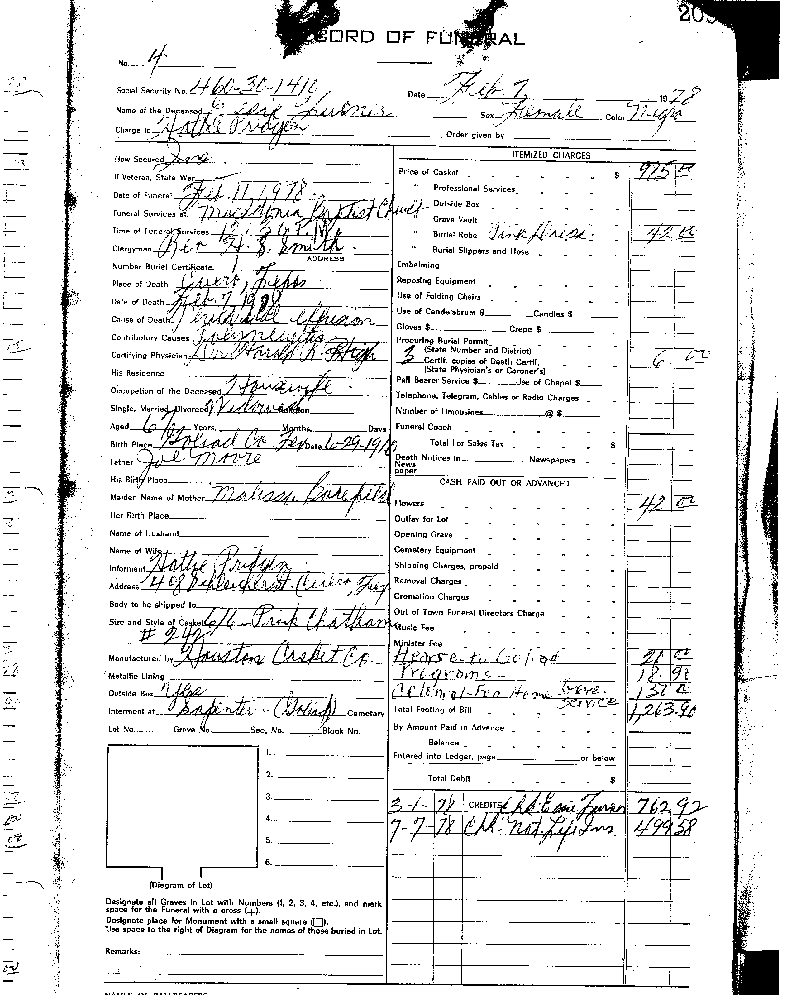 209
RECORD OF FUNERAL
No. 4
Social Security No. 460-30-1410 Date Feb 7 1978
Name of the Deceased Turner Sex Female Color Negro
Charge to Hattie Pridgen Order given by
How Secured Ins
If Veteran, State War
Date of Funeral Feb. 11, 1978
Funeral Services at Macedonia Baptist Church
Time of Funeral Services
Clergyman Rev H. S. Smith
ADDRESS
Number Burial Certificate
Place of Death Cuero, Texas
Date of Death Feb. 7 1978
Cause of Death
Contributory Causes
Certifying Physician Harold
His Residence
Occupation of the Deceased Housewife
Single, Married, Divorced Widow
Aged 67 Years, Months, Days
Birth Place Goliad Co Tex Date 6-29-1910
Father Joe Moore
His Birth Place
Maiden Name of Mother Malissa
Her Birth Place
Name of Husband
Name of Wife
Informant Hattie Pridgen
Address 408 Cuero, Tex
Body to be shipped to
Size and Style of Casket 6/6 Pink Chatham
# 242
Manufactured by Houston Casket Co.
Metallic Lining
Outside Box
Interment at (Goliad) Cemetary
Lot No. Grave No. Sec. No. Block No.
1.
2.
3.
4.
5.
6.
(Diagram of Lot)
Designate all Graves in Lot with Numbers (1, 2, 3, 4, etc.), and mark
space for the Funeral with a cross (+).
Designate place for Monument with a small square (☐).
Use space to the right of Diagram for the names of those buried in Lot.
Remarks:
ITEMIZED CHARGES
Price of Casket $ 975 00
" Professional Services
" Outside Box
" Grave Vault
" Burial Robe Pink Dress 42 00
" Burial Slippers and Hose
Embalming
Reposing Equipment
Use of Folding Chairs
Use of Candelabrum @ Candles $
Gloves $ Crepe $
Procuring Burial Permit
(State Number and District)
3 Certif. copies of Death Certif. 6 00
(State Physician's or Coroner's)
Pall Bearer Service $ Use of Chapel $
Telephone, Telegram, Cables or Radio Charges
Number of Limousines @ $
Funeral Coach
Total for Sales Tax $
Death Notices in Newspapers
News
paper
CASH PAID OUT OR ADVANCED
Flowers 42 00
Outlay for Lot
Opening Grave
Cemetary Equipment
Shipping Charges, prepaid
Removal Charges
Cremation Charges
Out of Town Funeral Directors Charge
Music Fee
Minister Fee
Hearse to Goliad
Programs 18.90
Home Grave
Service
Total Footing of Bill 1,263.90
By Amount Paid in Advance
Balance
Entered into Ledger, page or below
Total Debit $
3-1-78 CREDITS Chk Essie Turner 762.92
7-7-78 Chk Nat. Life Ins 499.38